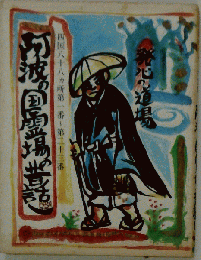 発心の道場
四国八十八カ所第一番~第二十三番
阿波の国霊場の昔話